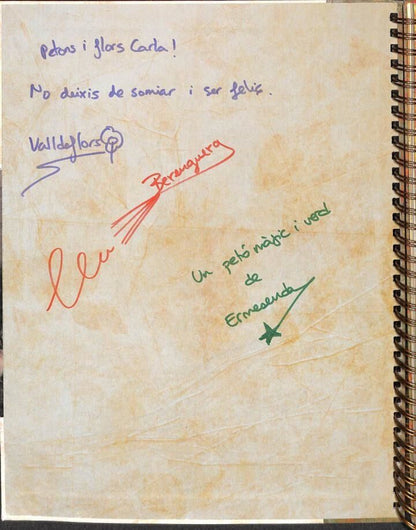 Petons i flors Carla!
No deixis de somiar i ser feliç.
Valldeflors
Berenguera
Un petó màgic i verd
de
Ermesenda